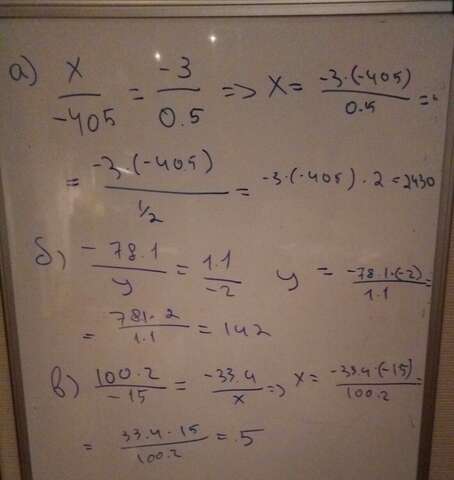 а) x/-405 = -3/0.5 => x = -3·(-405)/0.5 =
= -3·(-405)/1/2 = -3·(-405)·2 = 2430
б) -78.1/y = 1.1/-2 y = -78.1·(-2)/1.1 =
= 781·2/1.1 = 142
в) 100.2/-15 = -33.4/x => x = -33.4·(-15)/100.2 =
= 33.4·15/100.2 = 5